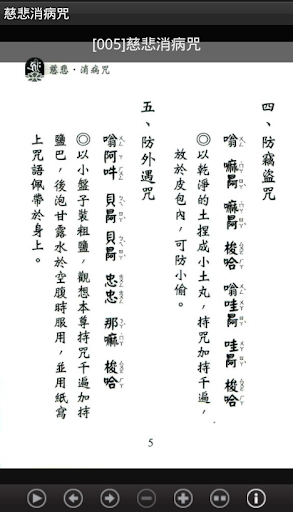 慈悲消病咒
[005]慈悲消病咒
慈悲・消病咒
四、防竊盜咒
嗡 嘛 嘛 梭哈 嗡 哇 哇 梭哈
◎以乾淨的土捏成小土丸，持咒加持千遍，
放於皮包內，可防小偷。
五、防外遇咒
嗡阿吽 貝 貝 忠忠 那嘛 梭哈
◎以小盤子裝粗鹽，觀想本尊持咒千遍加持
鹽巴，後泡甘露水於空腹時服用，並用紙寫
上咒語佩帶於身上。
5